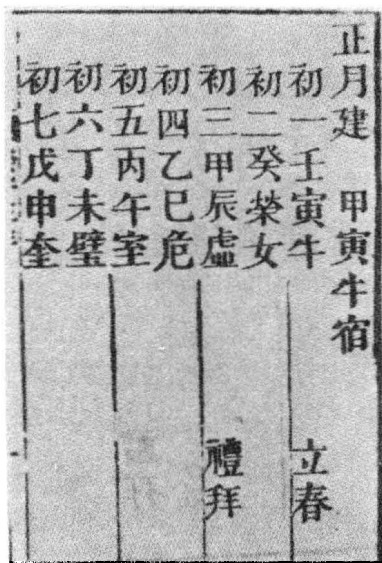 正月建 甲寅牛宿
初一壬寅牛 立春
初二癸榮女
初三甲辰虛 禮拜
初四乙巳危
初五丙午室
初六丁未璧
初七戊申奎